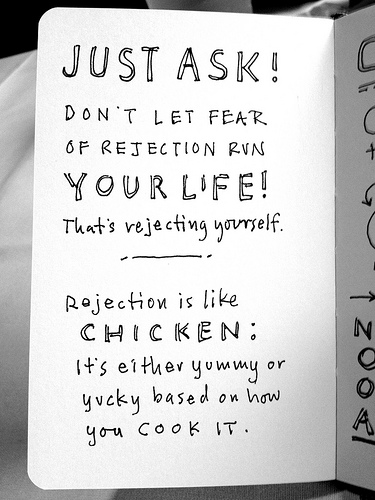 JUST ASK!
DON'T LET FEAR
OF REJECTION RUN
YOUR LIFE!
That's rejecting yourself.
Rejection is like
CHICKEN:
It's either yummy or
yucky based on how
you COOK IT.